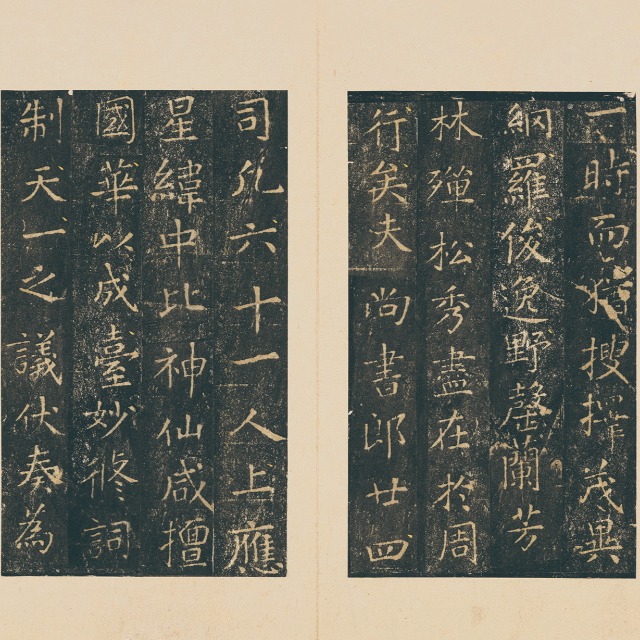 一時而猶搜擇茂異
網羅俊逸野罄蘭芳
林殫松秀盡在於周
行矣夫尚書郎廿四
司凡六十一人上應
星緯中比神仙咸擅
國華以成臺妙脩詞
制天一之議伏奏為